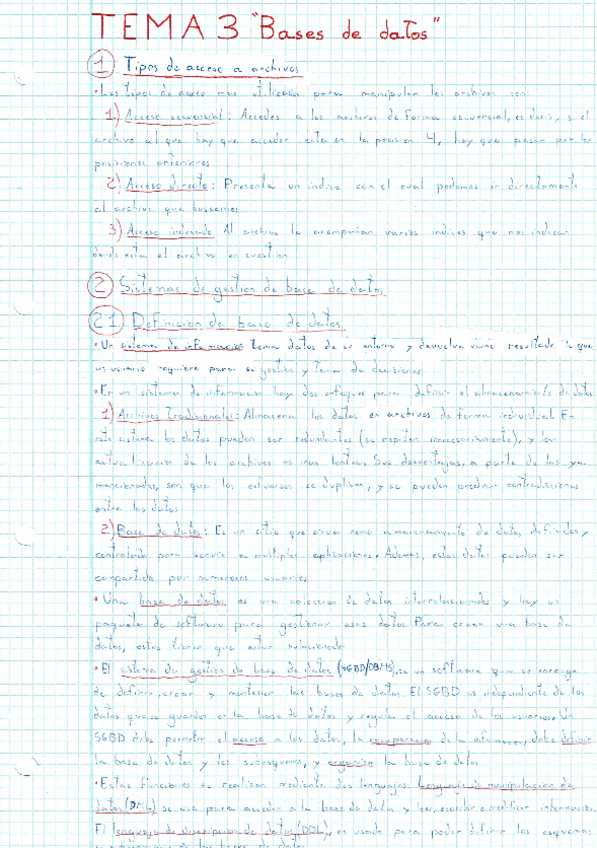 TEMA 3 "Bases de datos"
1 Tipos de acceso a archivos
• Los tipos de acceso mas utilizados para manipular los archivos son:
1) Acceso secuencial: Accedes a los archivos de forma secuencial, es decir, si el
archivo al que hay que acceder esta en la posicion 4, hay que pasar por las
posiciones anteriores
2) Acceso directo: Presenta un indice con el cual podemos ir directamente
al archivo que buscamos
3) Acceso indexado Al archivo le acompañan varios indices que nos indican
donde esta el archivo en cuestion
2 Sistemas de gestion de base de datos
2.1 Definicion de base de datos
• Un sistema de informacion toma datos de su entorno y devuelve como resultado lo que
un usuario requiere para su gestion y toma de decisiones
• En un sistema de informacion hay dos enfoques para definir el almacenamiento de datos
1) Archivos Tradicionales: Almacena los datos en archivos de forma individual. En
este sistema los datos pueden ser redundantes (se repiten innecesariamente), y la
actualizacion de los archivos es mas lenta. Sus desventajas, a parte de las ya
mencionadas, son que los esfuerzos se duplican, y se pueden producir contradicciones
entre los datos
2) Base de datos: Es un sitio que sirve como almacenamiento de datos, definidos y
controlado para servir a multiples aplicaciones. Ademas, estos datos pueden ser
compartido por numerosos usuarios
• Una base de datos es una coleccion de datos interrelacionados y hay un
paquete de software para gestionar esos datos Para crear una base de
datos, estos tienen que estar relacionado
• El sistema de gestion de base de datos (SGBD/DBMS), es un software que se encarga
de definir, crear y mantener las bases de datos. El SGBD es independiente de los
datos que se guardan en la base de datos y regula el acceso de los usuarios. Un
SGBD debe permitir el acceso a los datos, la recuperacion de la informacion, debe definir
la base de datos y los subesquemas, y organizar la base de datos
• Estas funciones se realizan mediante dos lenguajes. Lenguaje de manipulacion de
datos (DML) se usa para acceder a la base de datos y leer, escribir o modificar informacion.
El lenguaje de descripcion de datos (DDL), es usado para poder definir los esquemas